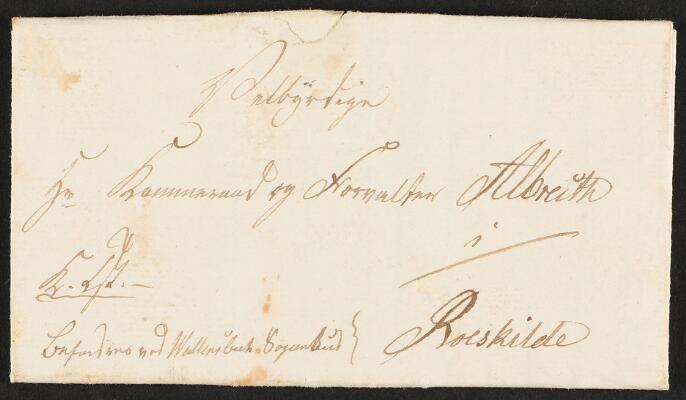 Velbyrdige
Hr Kammerraad og Forvalter Albreith
i
K. Tst.
Roeskilde
besørges ved Wallensbek Sognebud